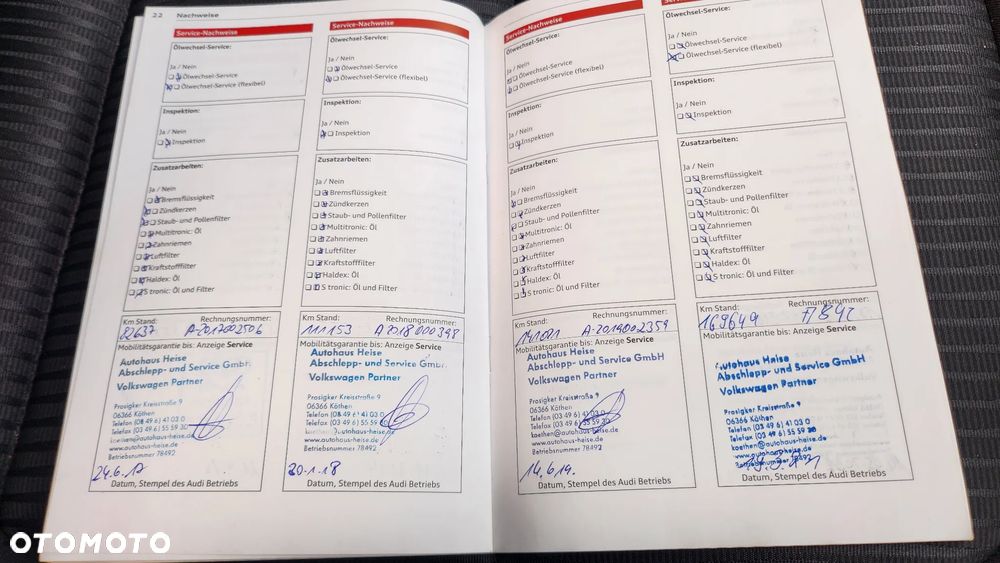 22 Nachweise
Service-Nachweise
Ölwechsel-Service:
Ja / Nein
Ölwechsel-Service
Ölwechsel-Service (flexibel)
Inspektion:
Ja / Nein
Inspektion
Zusatzarbeiten:
Ja / Nein
Bremsflüssigkeit
Zündkerzen
Staub- und Pollenfilter
Multitronic: Öl
Zahnriemen
Luftfilter
Kraftstofffilter
Haldex: Öl
S tronic: Öl und Filter
Km Stand: Rechnungsnummer:
82637 A-2017002506
Mobilitätsgarantie bis: Anzeige Service
Autohaus Heise
Abschlepp- und Service GmbH
Volkswagen Partner
Prosigker Kreisstraße 9
06366 Köthen
Telefon (03 49 6) 41 03 0
Telefax (03 49 6) 55 59 30
koethen@autohaus-heise.de
www.autohaus-heise.de
Betriebsnummer 78492
24.6.17
Datum, Stempel des Audi Betriebs
Service-Nachweise
Ölwechsel-Service:
Ja / Nein
Ölwechsel-Service
Ölwechsel-Service (flexibel)
Inspektion:
Ja / Nein
Inspektion
Zusatzarbeiten:
Ja / Nein
Bremsflüssigkeit
Zündkerzen
Staub- und Pollenfilter
Multitronic: Öl
Zahnriemen
Luftfilter
Kraftstofffilter
Haldex: Öl
S tronic: Öl und Filter
Km Stand: Rechnungsnummer:
111153 A2018000398
Mobilitätsgarantie bis: Anzeige Service
Autohaus Heise
Abschlepp- und Service GmbH
Volkswagen Partner
Prosigker Kreisstraße 9
06366 Köthen
Telefon (03 49 6) 41 03 0
Telefax (03 49 6) 55 59
@autohaus-heise.de
www.autohaus-heise.de
Betriebsnummer 78492
20.1.18
Datum, Stempel des Audi Betriebs
Service-Nachweise
Ölwechsel-Service:
Ja / Nein
Ölwechsel-Service
Ölwechsel-Service (flexibel)
Inspektion:
Ja / Nein
Inspektion
Zusatzarbeiten:
Ja / Nein
Bremsflüssigkeit
Zündkerzen
Staub- und Pollenfilter
Multitronic: Öl
Zahnriemen
Luftfilter
Kraftstofffilter
Haldex: Öl
S tronic: Öl und Filter
Km Stand: Rechnungsnummer:
A-2019002359
Mobilitätsgarantie bis: Anzeige Service
Autohaus Heise
Abschlepp- und Service GmbH
Volkswagen Partner
Prosigker Kreisstraße 9
06366 Köthen
Telefon (03 49 6) 41 03 0
Telefax (03 49 6) 55 59 30
koethen@autohaus-heise.de
www.autohaus-heise.de
Betriebsnummer 78492
14.6.19.
Datum, Stempel des Audi Betriebs
Ölwechsel-Service:
Ja / Nein
Ölwechsel-Service
Ölwechsel-Service (flexibel)
Inspektion:
Ja / Nein
Inspektion
Zusatzarbeiten:
Ja / Nein
Bremsflüssigkeit
Zündkerzen
Staub- und Pollenfilter
Multitronic: Öl
Zahnriemen
Luftfilter
Kraftstofffilter
Haldex: Öl
S tronic: Öl und Filter
Km Stand: Rechnungsnummer:
169649
Mobilitätsgarantie bis: Anzeige Service
Autohaus Heise
Abschlepp- und Service GmbH
Volkswagen Partner
Prosigker Kreisstraße 9
06366 Köthen
Telefon (03 49 6) 41 03 0
Telefax (03 49 6) 55 59 30
koethen@autohaus-heise.de
www.autohaus-heise.de
Betriebsnummer 78492
Datum, Stempel des Audi Betriebs
OTOMOTO